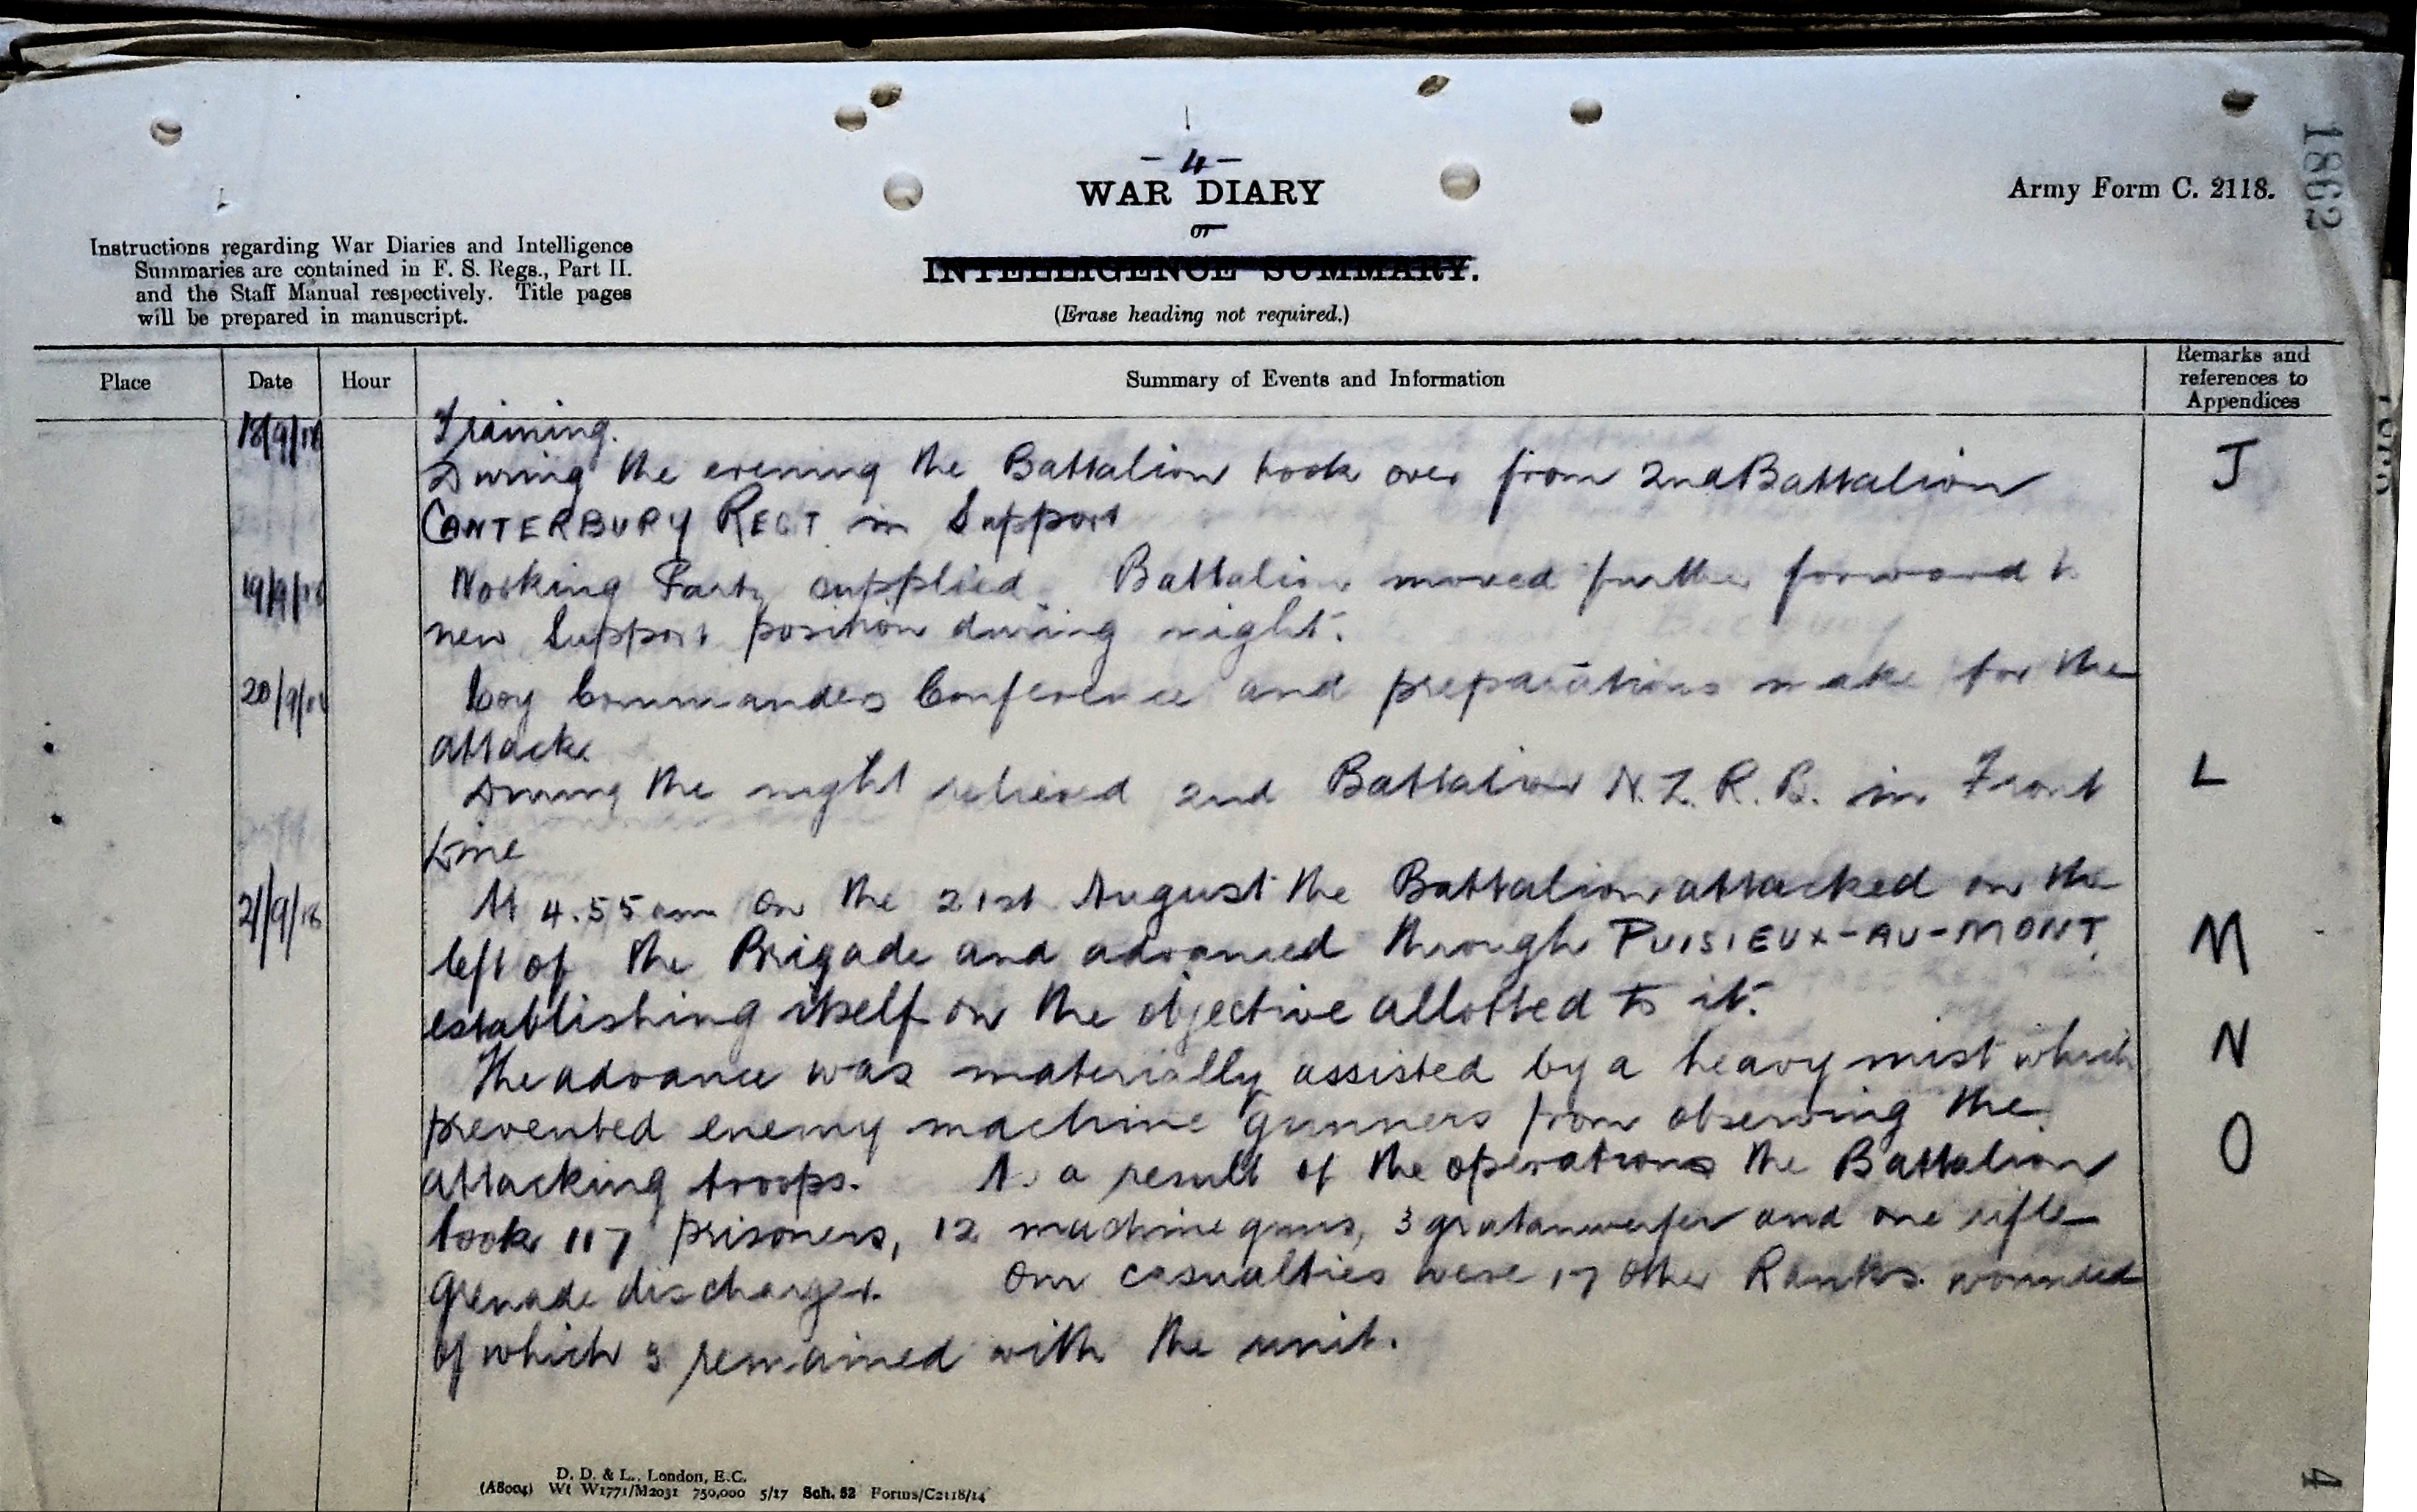 - 4 -
WAR DIARY
or
INTELLIGENCE SUMMARY.
(Erase heading not required.)
Army Form C. 2118.
1862
Instructions regarding War Diaries and Intelligence
Summaries are contained in F. S. Regs., Part II.
and the Staff Manual respectively. Title pages
will be prepared in manuscript.
Place Date Hour Summary of Events and Information Remarks and
references to
Appendices
18/9/18 Training.
During the evening the Battalion took over from 2nd Battalion J
CANTERBURY REGT in Support
19/9/18 Working Party supplied. Battalion moved further forward to
new Support position during night.
20/9/18 Coy Commanders Conference and preparations make for the
attack
During the night relieved 2nd Battalion N.Z.R.B. in Front L
Line
21/9/18 At 4.55am on the 21st August the Battalion attacked on the
left of the Brigade and advanced through PUISIEUX-AU-MONT M
establishing itself on the objective allotted to it.
The advance was materially assisted by a heavy mist which N
prevented enemy machine gunners from observing the
attacking troops. As a result of the operations the Battalion O
took 117 prisoners, 12 machine guns, 3 granatenwerfer and one rifle
grenade discharger. Our casualties were 17 Other Ranks wounded
of which 3 remained with the unit.
D. D. & L., London, E.C.
(A8004) Wt W1771/M2031 750,000 5/17 Sch. 52 Forms/C2118/14
4